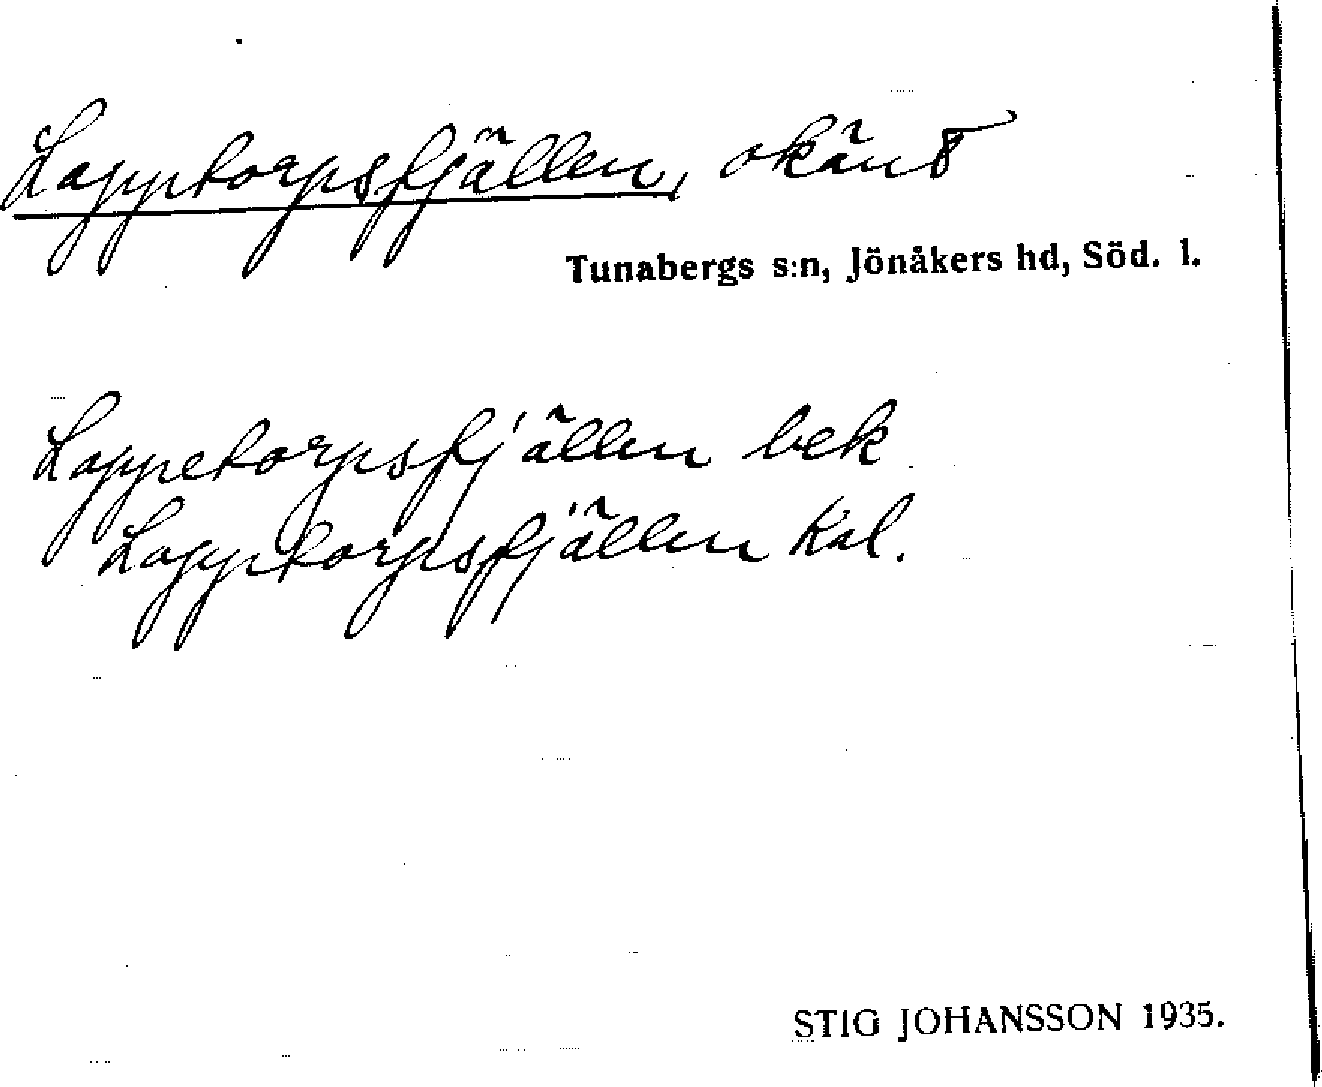 Lapptorpsfjällen, okänt
Tunabergs s:n, Jönåkers hd, Söd. l.
Lappetorpsfjällen bek
Lapptorpsfjällen Kal.
STIG JOHANSSON 1935.